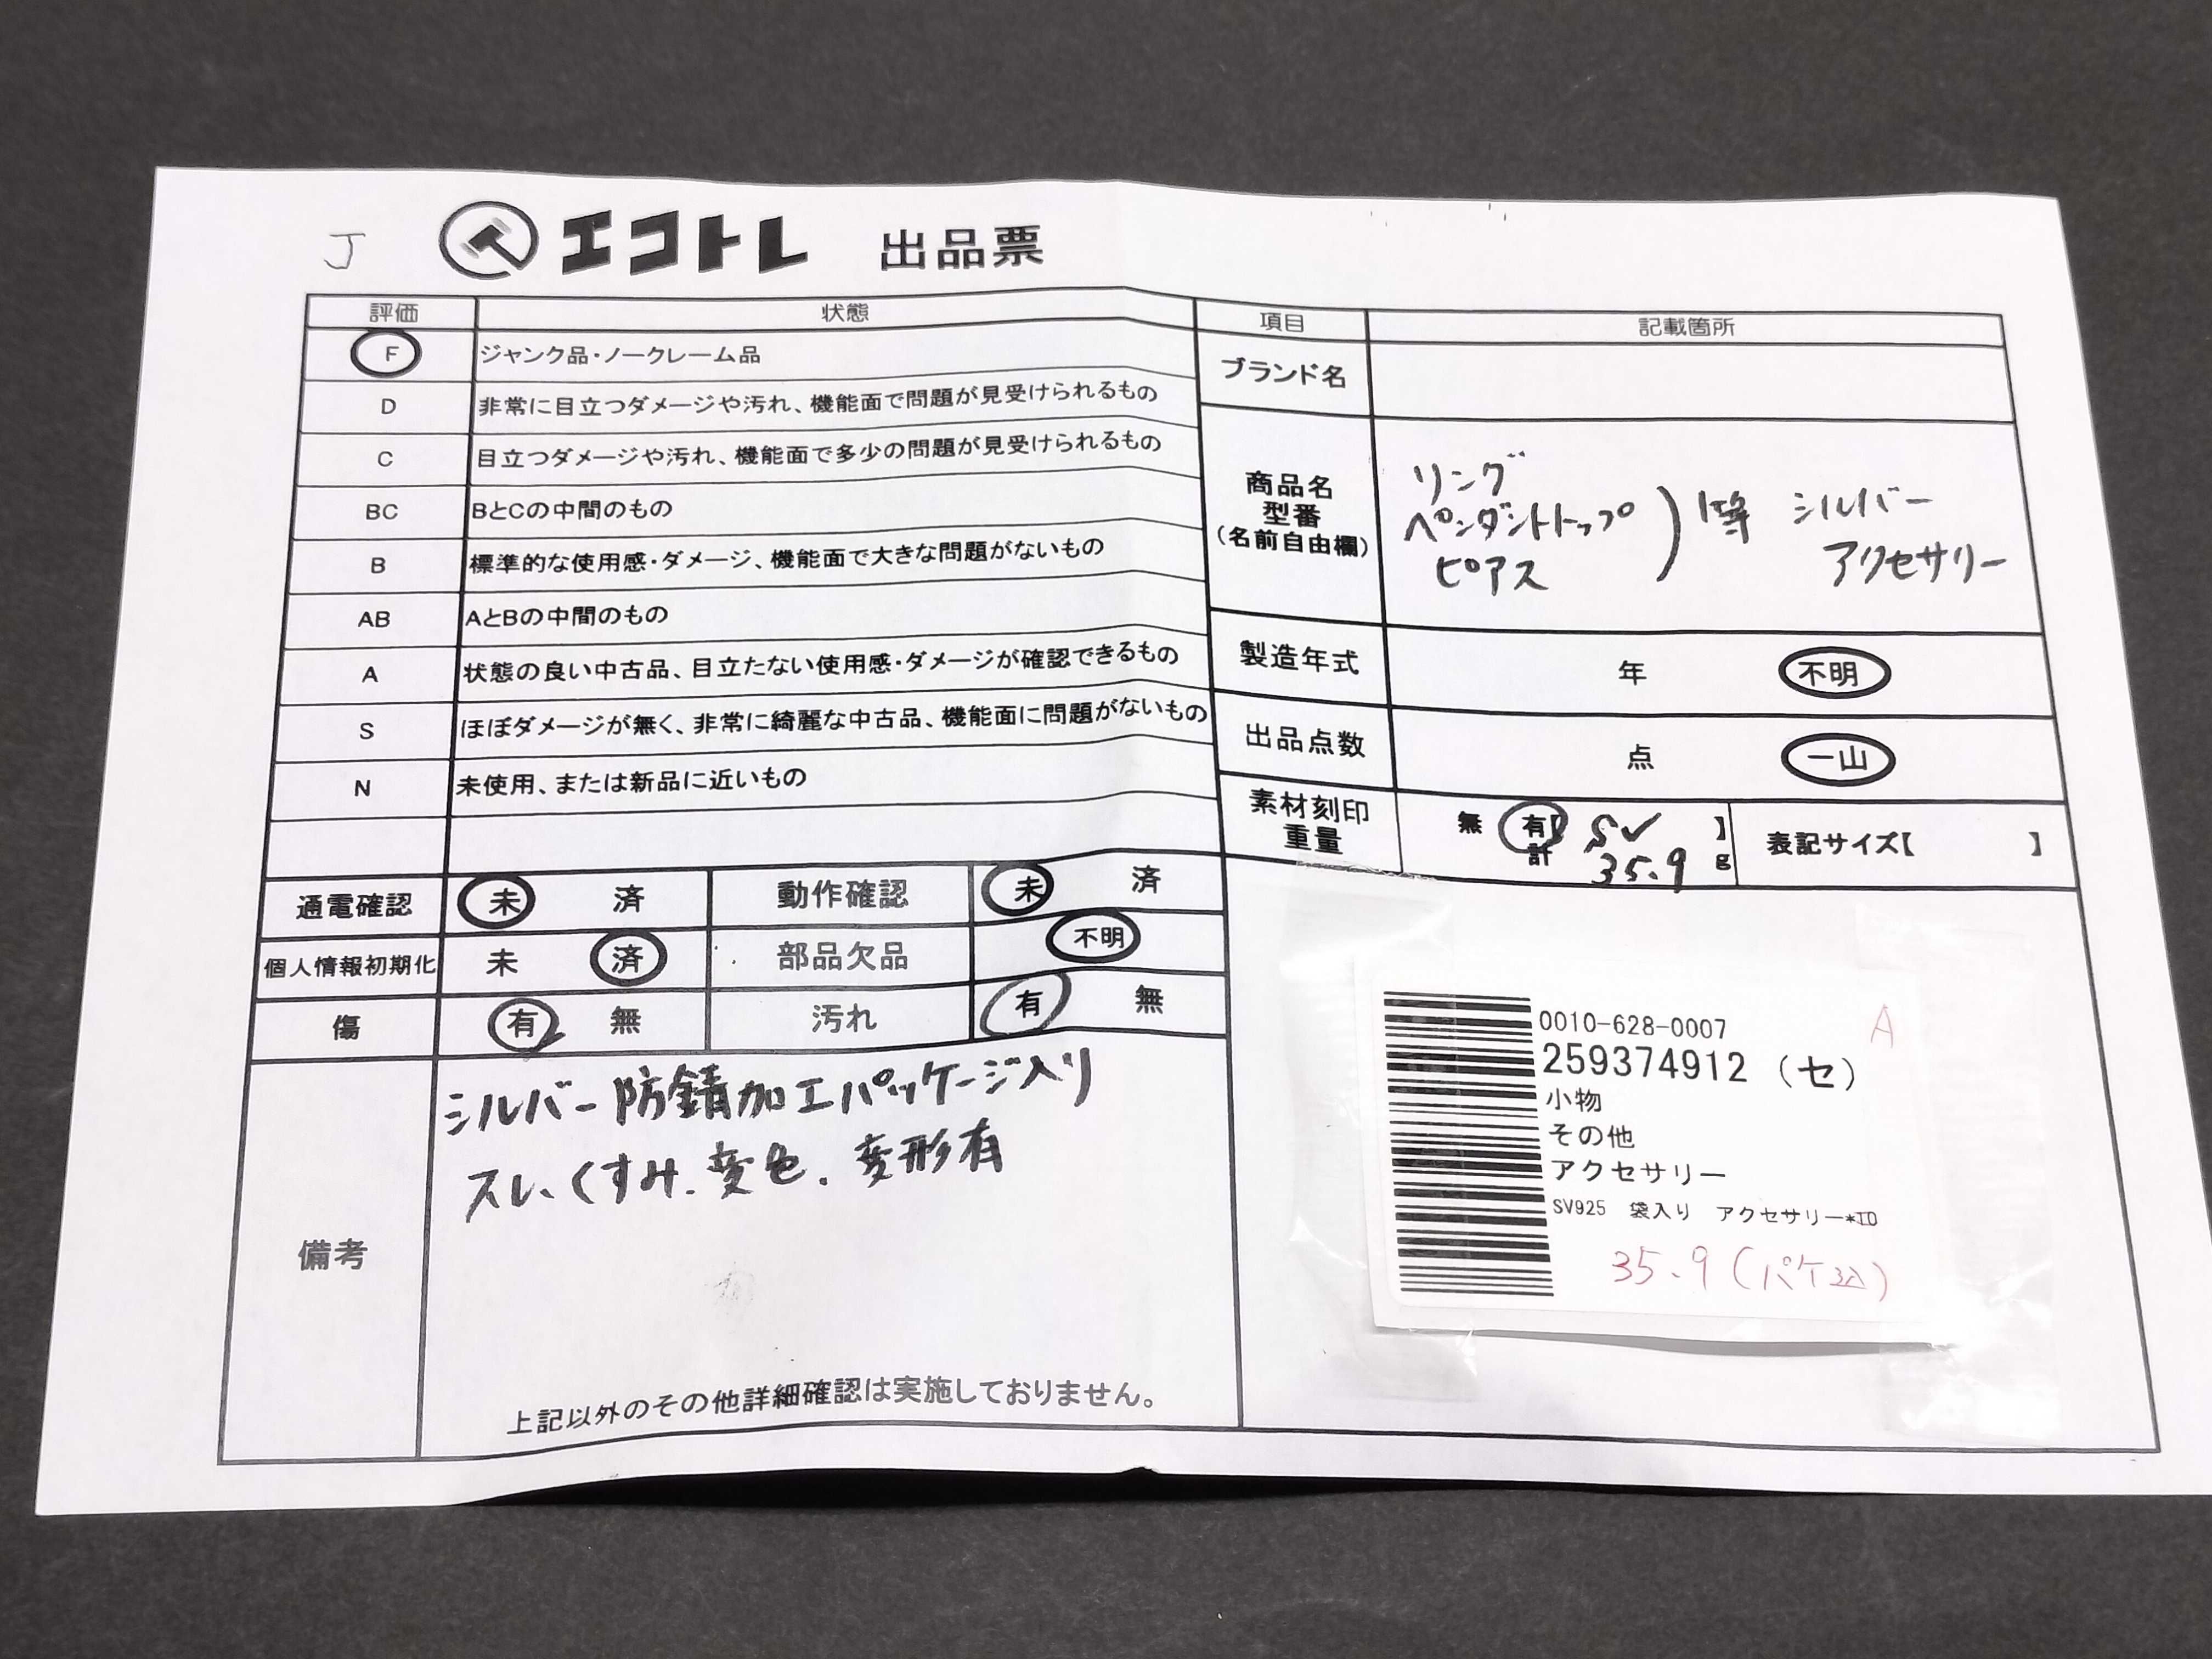 J エコトレ 出品票
評価 状態
F ジャンク品・ノークレーム品
D 非常に目立つダメージや汚れ、機能面で問題が見受けられるもの
C 目立つダメージや汚れ、機能面で多少の問題が見受けられるもの
BC BとCの中間のもの
B 標準的な使用感・ダメージ、機能面で大きな問題がないもの
AB AとBの中間のもの
A 状態の良い中古品、目立たない使用感・ダメージが確認できるもの
S ほぼダメージが無く、非常に綺麗な中古品、機能面に問題がないもの
N 未使用、または新品に近いもの
通電確認 未 済 動作確認 未 済
個人情報初期化 未 済 部品欠品 不明
傷 有 無 汚れ 有 無
備考
シルバー防錆加工パッケージ入り
スレ、くすみ、変色、変形有
上記以外のその他詳細確認は実施しておりません。
項目 記載箇所
ブランド名
商品名
型番
(名前自由欄)
リング
ペンダントトップ
ピアス
等 シルバー
アクセサリー
製造年式 年 不明
出品点数 点 一山
素材刻印
重量
無 有【 SV 】
計 35.9 g
表記サイズ【 】
0010-628-0007 A
259374912 (セ)
小物
その他
アクセサリー
SV925 袋入り アクセサリー*ID
35.9(パケ込)